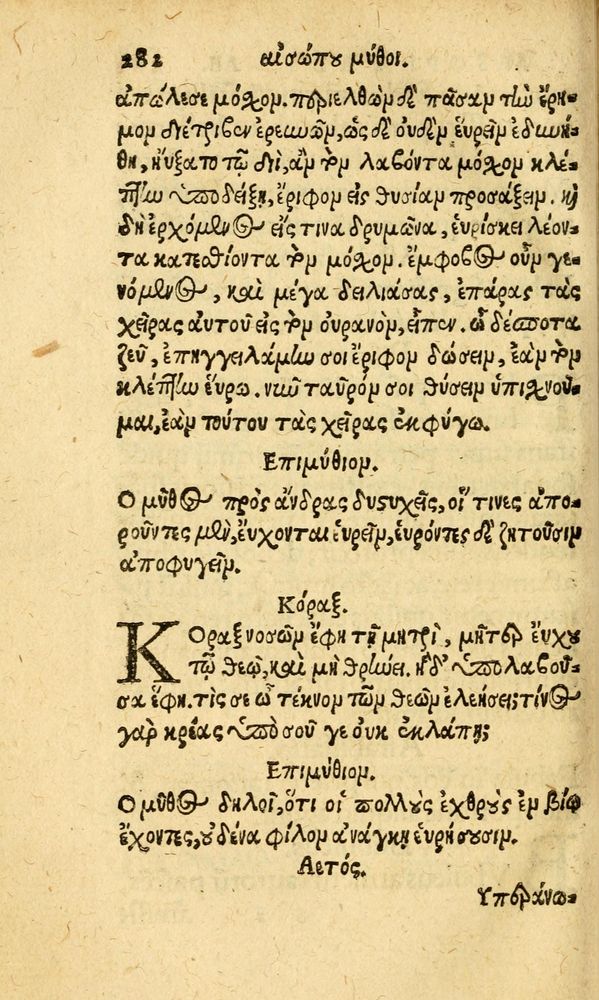 282 αἰσώπου μύθοι.
ἀπώλεσε μόσχον. περιελθὼν δὲ πᾶσαν τὴν ἔρη-
μον διέτριβεν ἐρευνῶν, ὡς δὲ οὐδὲν ἑυρεῖν ἐδυνή-
θη, ηὔξατο τῷ διῒ, ἂν τὸν λαβόντα μόσχον κλέ-
πτην ὑποδείξῃ, ἔριφον εἰς θυσίαν προσάξειν. καὶ
δὴ ἐρχόμενος εἴς τινα δρυμῶνα, ἑυρίσκει λέον-
τα κατεσθίοντα τὸν μόσχον. ἔμφοβος οὖν γε-
νόμενος, καὶ μέγα δειλιάσας, ἐπάρας τὰς
χεῖρας αὐτοῦ εἰς τὸν οὐρανὸν, εἶπεν. ὦ δέσποτα
ζεῦ, ἐπηγγειλάμην σοι ἔριφον δώσειν, ἐὰν τὸν
κλέπτην ἕυρω. νῦν ταῦρόν σοι θύσειν ὑπισχνοῦ-
μαι, ἐὰν τούτου τὰς χεῖρας ἐκφύγω.
Επιμύθιον.
Ο μῦθος πρὸς ἄνδρας δυςυχεῖς, οἵ τινες ἀπο-
ροῦντες μὲν, ἔυχονται ἑυρεῖν, ἑυρόντες δὲ ζητοῦσιν
ἀποφυγεῖν.
Κόραξ.
ΚΟραξ νοσῶν ἔφη τῇ μητρὶ, μῆτερ ἔυχου
τῷ θεῷ, καὶ μὴ θρήνει. ἡ δ᾽ ὑπολαβοῦ-
σα ἔφη. τίς σε ὦ τέκνον τῶν θεῶν ἐλεήσει; τίνος
γὰρ κρέας ὑπὸ σοῦ γε οὐκ ἐκλάπη;
Επιμύθιον.
Ο μῦθος δηλοῖ, ὅτι οἱ πολλοὺς ἐχθροὺς ἐν βίῳ
ἔχοντες, οὐδένα φίλον ἀνάγκῃ ἑυρήσουσιν.
Αετός.
Υπεράνω-